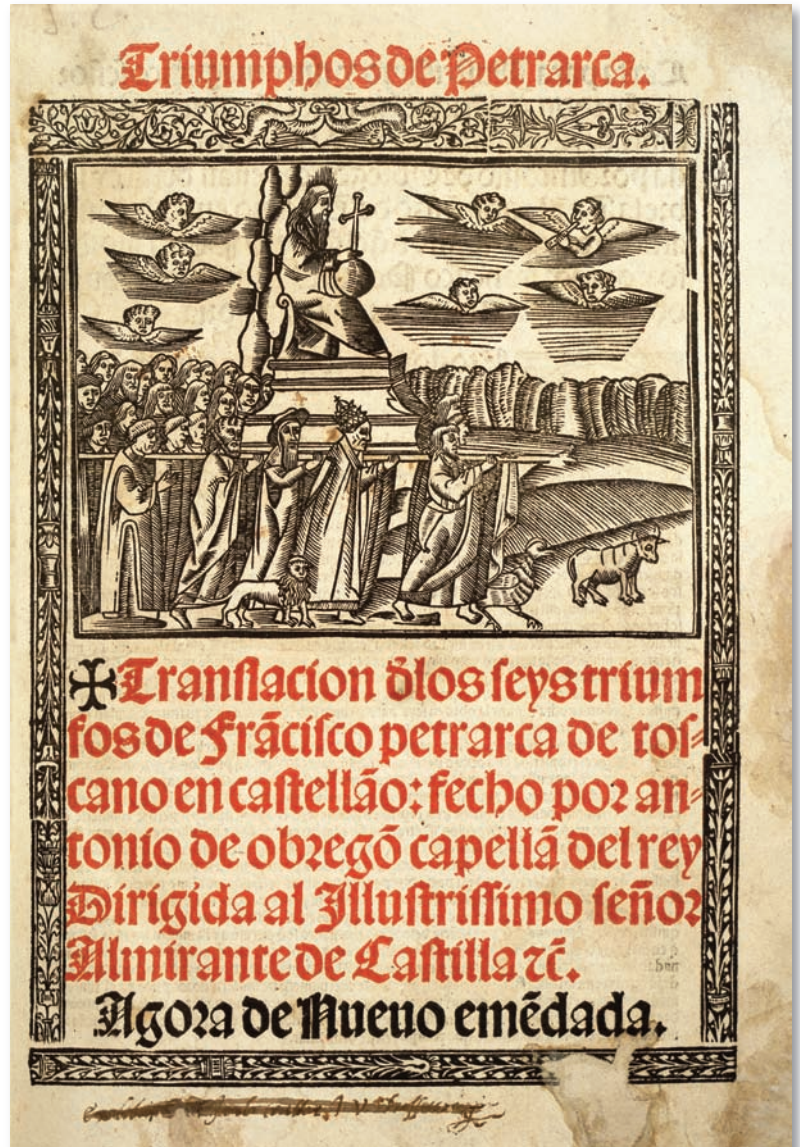 Triumphos de Petrarca.
✠Translacion đlos seys trium
fos de Frãcisco petrarca de tos⸗
cano en castellão: fecho por an⸗
tonio de obregõ capellã del rey
Dirigida al Illustrissimo señor
Almirante de Castilla ⁊c̃.
Agora de Nueuo emẽdada.